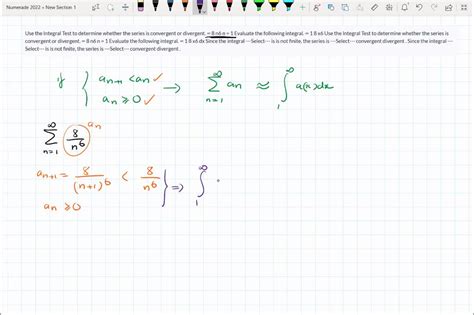 Numerade 2022 » New Section 1
Use the Integral Test to determine whether the series is convergent or divergent. = 8 n6 n = 1 Evaluate the following integral. ∞ 1 8 x6 Use the Integral Test to determine whether the series is
convergent or divergent. ∞ 8 n6 n = 1 Evaluate the following integral. ∞ 1 8 x6 dx Since the integral ---Select--- is is not finite, the series is ---Select--- convergent divergent . Since the integral ---
Select--- is is not finite, the series is ---Select--- convergent divergent .
if { aₙ₊₁ < aₙ ✓ aₙ ⩾ 0 ✓ → ∞ Σ n=1 aₙ ≈ ∞ ∫ 1 a(x)dx
∞ Σ n=1 8/n⁶ aₙ
aₙ₊₁ = 8/(n+1)⁶ < 8/n⁶ } ⇒ ∞ ∫ 1
aₙ ⩾ 0